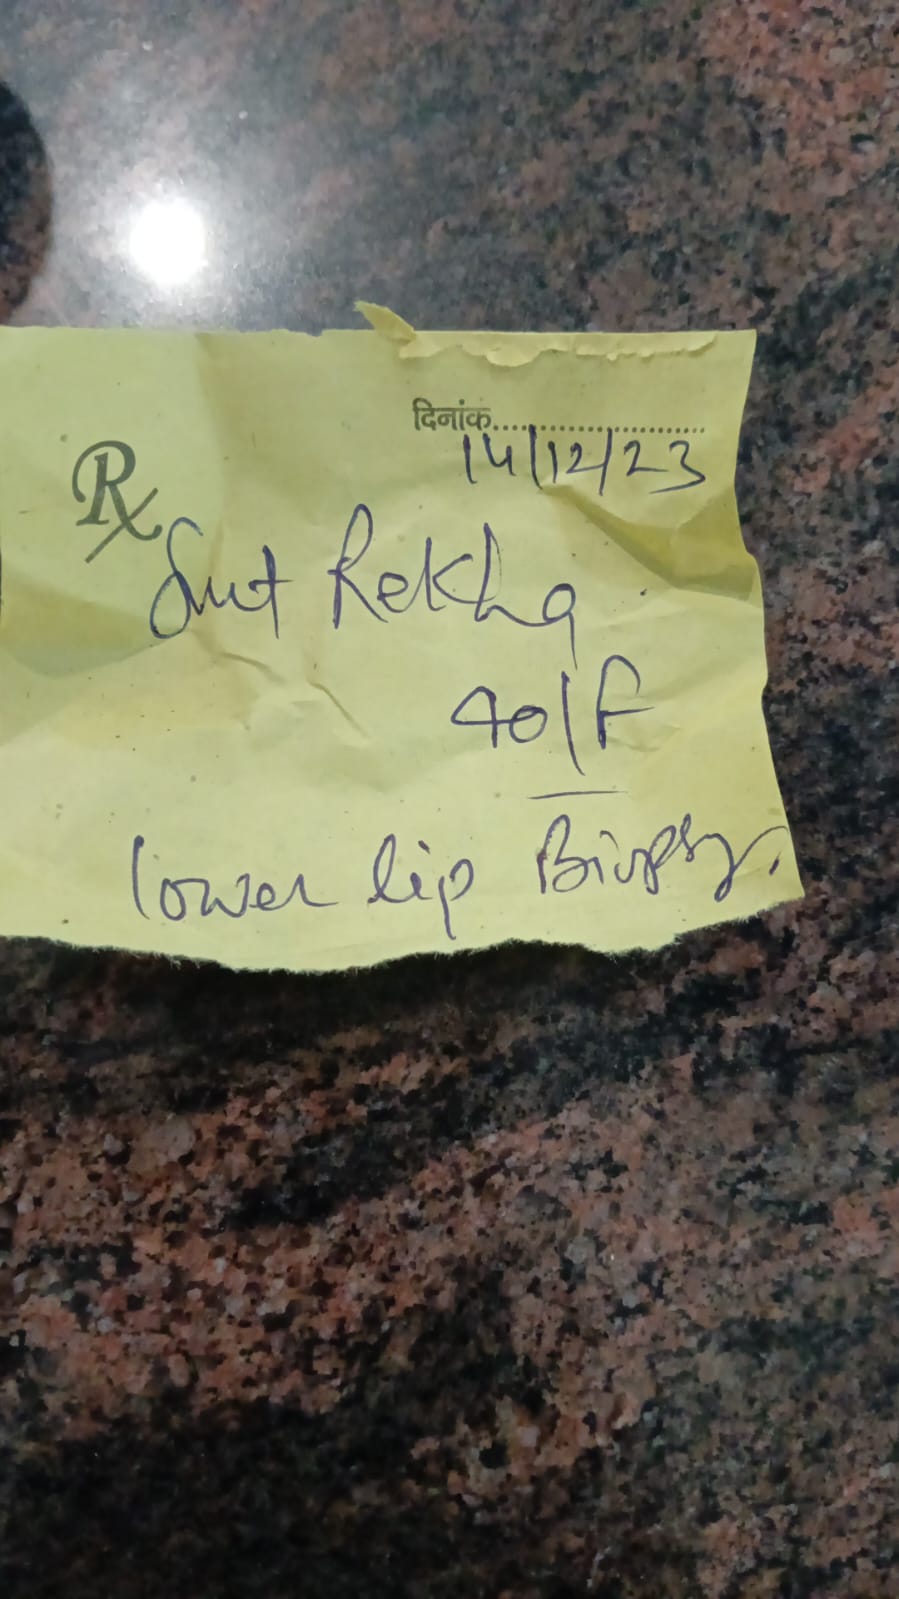 दिनांक......................
14/12/23
Rx
Smt Rekha
40/F
lower lip Biopsy.